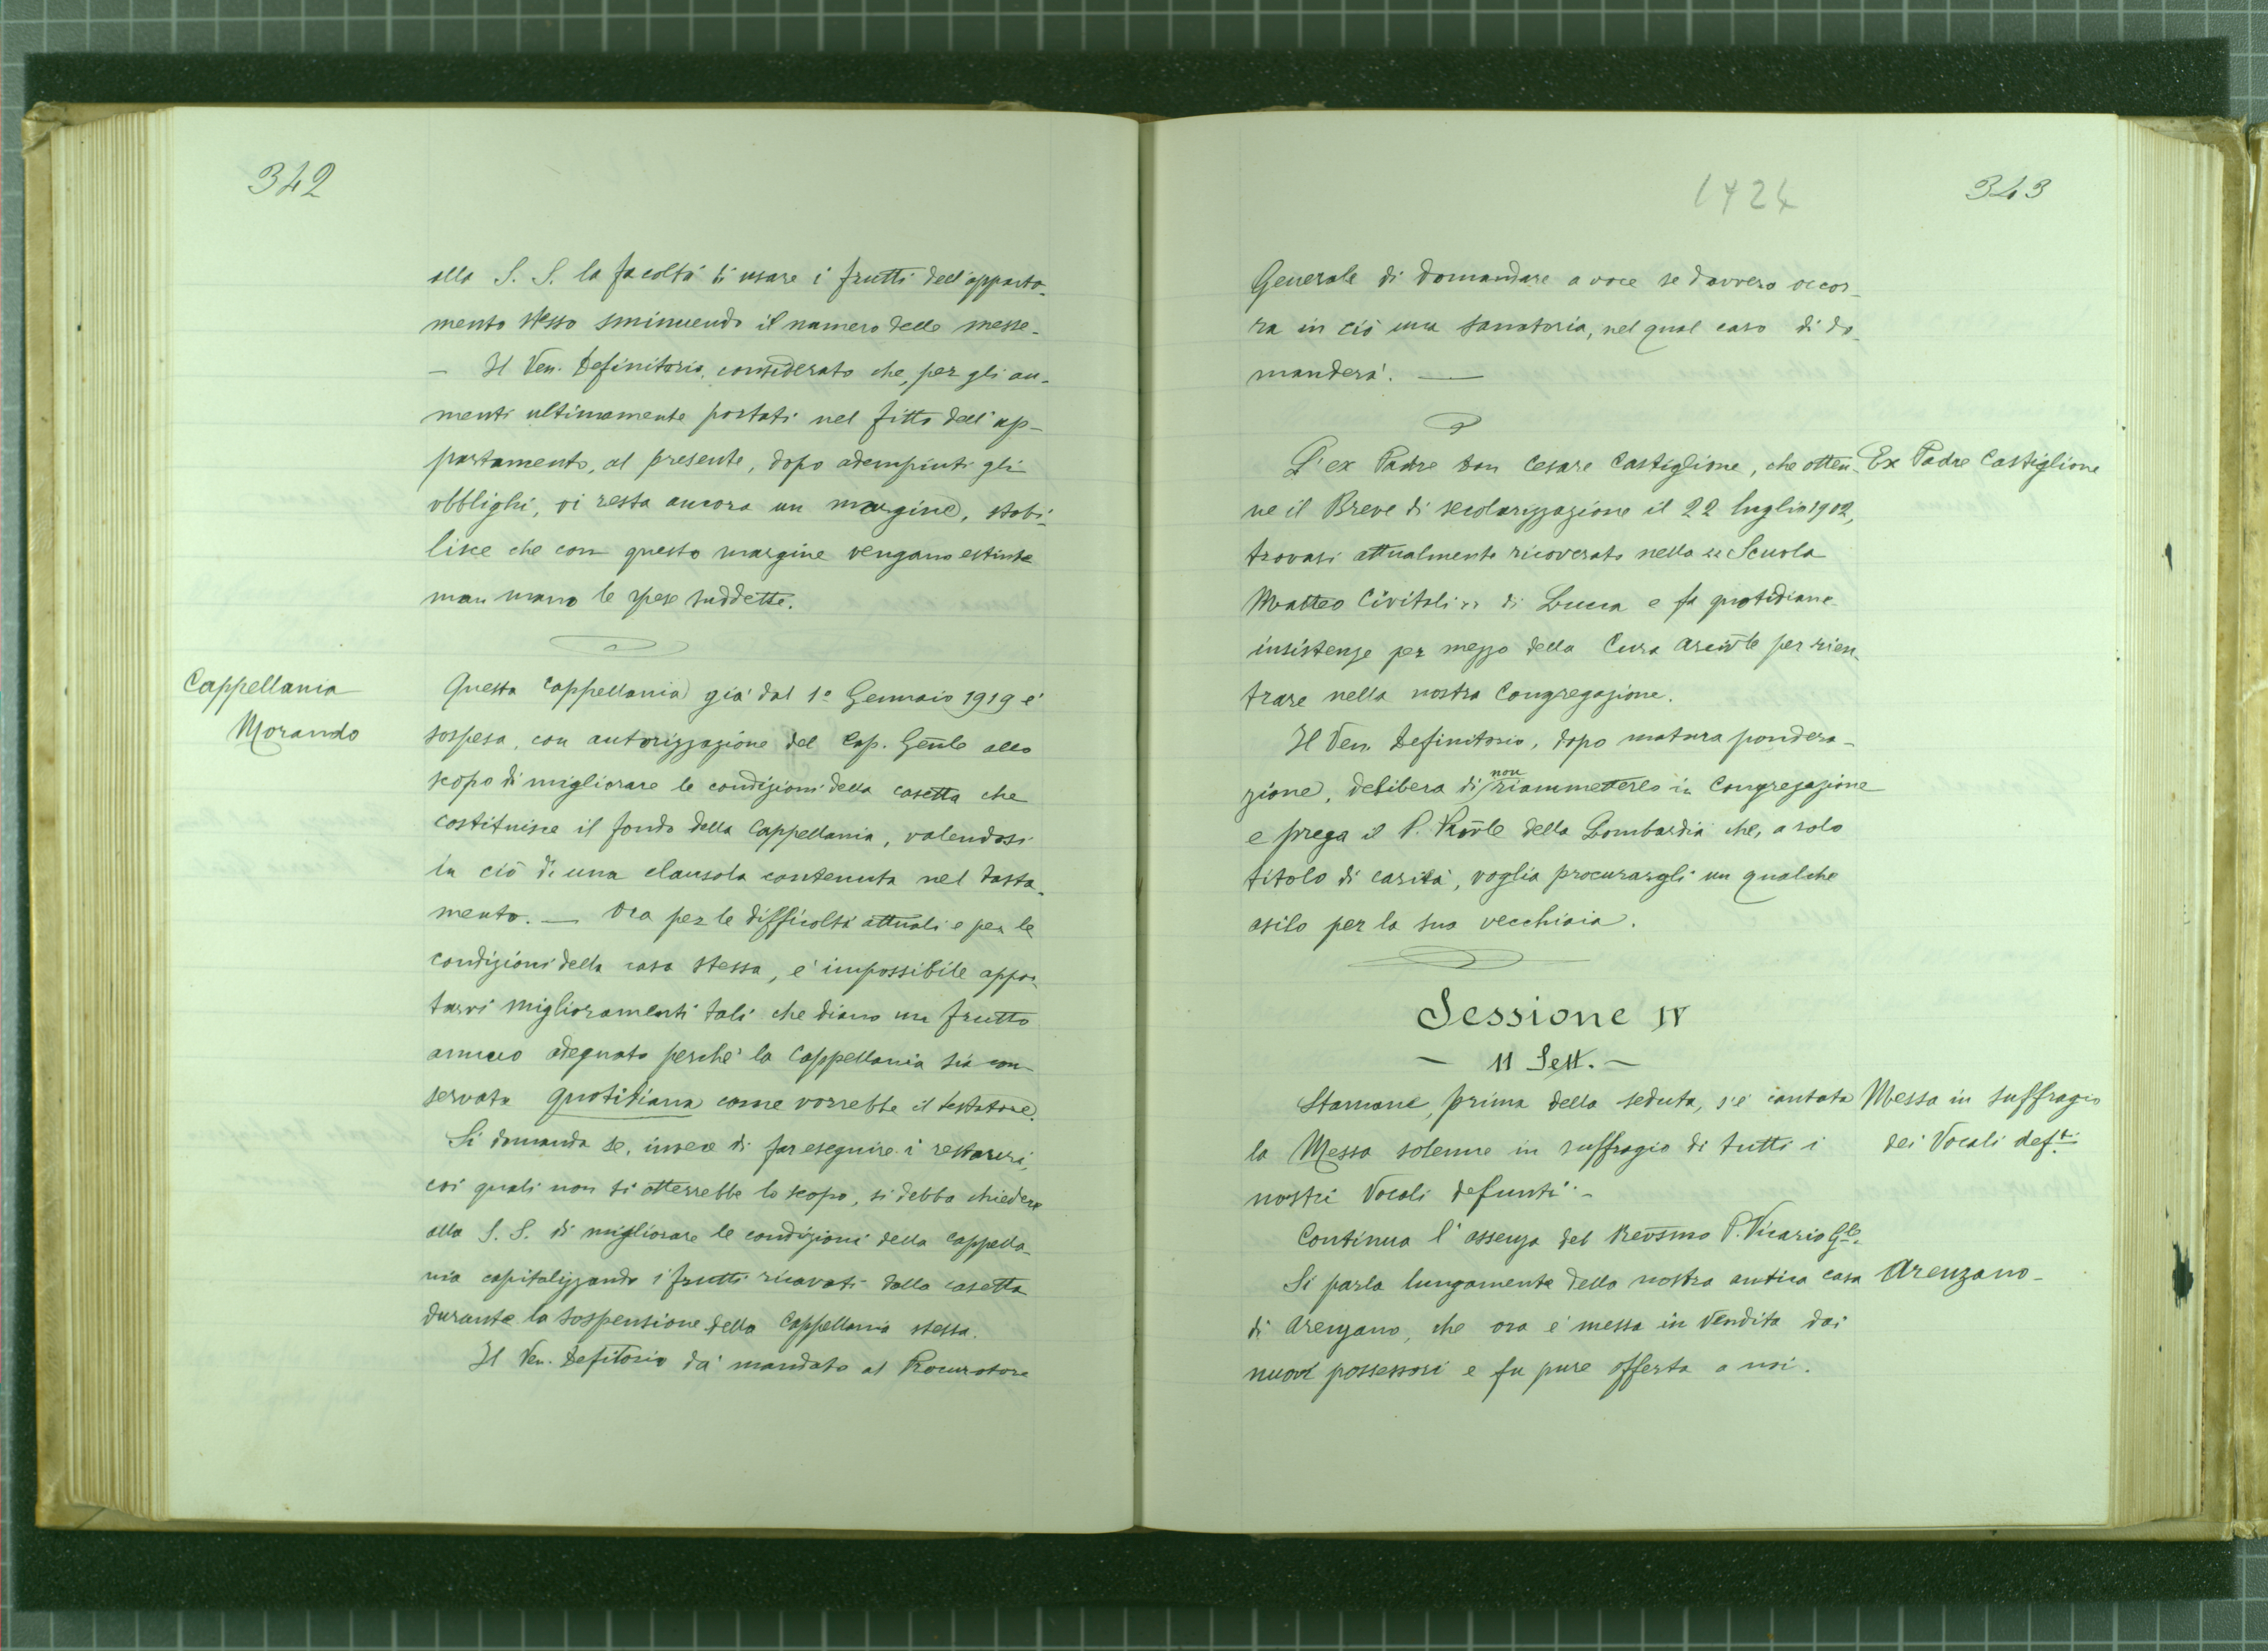 342
alla S. S. la facoltà di usare i frutti dell'apparta-
mento stesso sminuendo il numero delle messe.
— Il Ven. Definitorio, considerato che, per gli au-
menti ultimamente portati nel fitto dell'ap-
partamento, al presente, dopo adempiuti gli
obblighi, vi resta ancora un margine, stabi-
lisce che con questo margine vengano estinte
man mano le spese suddette.
Cappellania
Morando
Questa Cappellania già dal 1º Gennaio 1919 é
sospesa, con autorizzazione del Cap. Genle allo
scopo di migliorare le condizioni della casetta che
costituisce il fondo della Cappellania, valendosi
in ciò di una clausola contenuta nel testa-
mento. — Ora per le difficoltà attuali e per le
condizioni della casa stessa, é impossibile appor-
tarvi miglioramenti tali che diano un frutto
annuo adeguato perché la Cappellania sia con-
servata quotidiana come vorrebbe il testatore.
Si domanda se, invece di far eseguire i restauri,
coi quali non si otterrebbe lo scopo, si debba chiedere
alla S. S. di migliorare le condizioni della Cappella-
nia capitalizzando i frutti ricavati dalla casetta
durante la sospensione della Cappellania stessa.
Il Ven. Defitorio dà mandato al Procuratore
1924
343
Generale di domandare a voce se davvero occor-
ra in ciò una sanatoria, nel qual caso di do-
manderà. —
L'ex Padre Don Cesare Castiglione, che otten-
Ex Padre Castiglione
ne il Breve di secolarizzazione il 22 luglio 1902,
trovasi attualmente ricoverato nella « Scuola
Matteo Civitali » di Lucca e fa quotidiane
insistenze per mezzo della Curia Arcivle per rien-
trare nella nostra Congregazione.
Il Ven. Definitorio, dopo matura pondera-
zione, delibera di non riammetterlo in Congregazione
e prega il P. Provle della Lombardia che, a solo
titolo di carità, voglia procurargli un qualche
asilo per la sua vecchiaia.
Sessione IV
— 11 Sett. —
Stamane, prima della seduta, s'é cantata
Messa in suffragio
la Messa solenne in suffragio di tutti i
dei Vocali def.ti
nostri Vocali defunti. -
Continua l'assenza del Revsmo P. Vicario Gle.
Si parla lungamente della nostra antica casa
Arenzano -
di Arenzano, che ora é messa in vendita dai
nuovi possessori e fu pure offerta a noi.